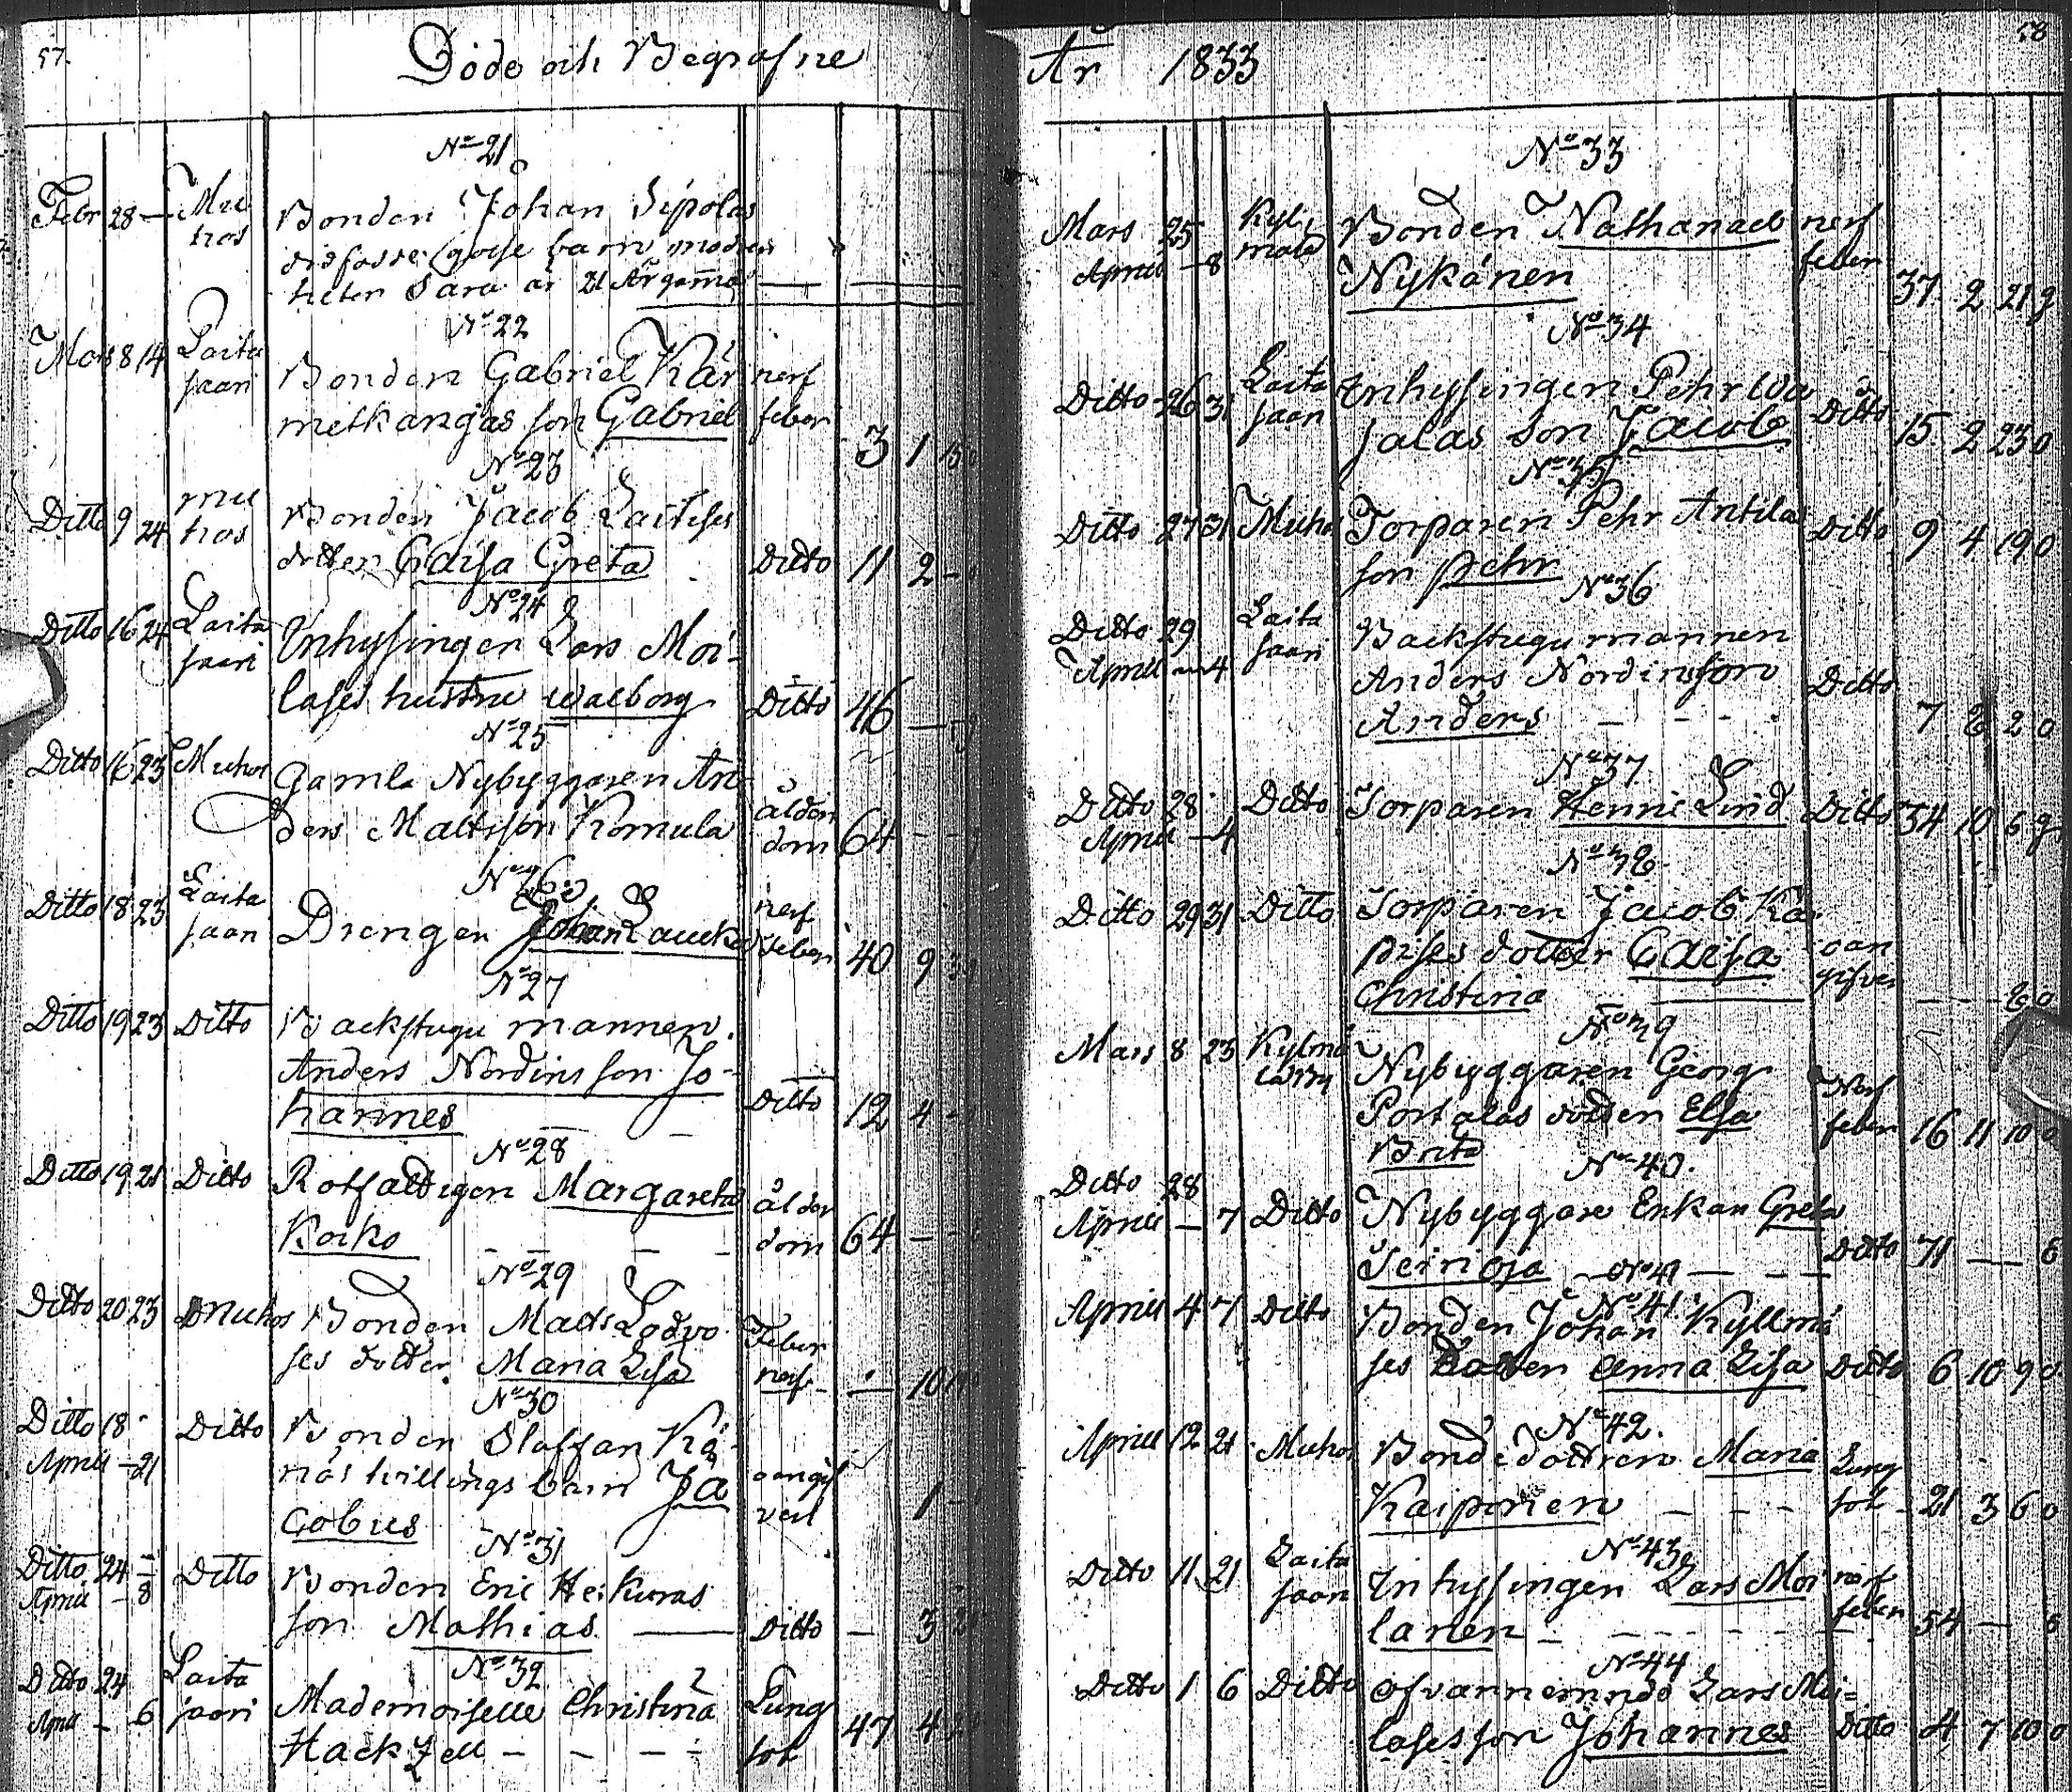 57.
Döde och Begrafne
No 21
Febr 28 — Mu
hos
Bonden Johan Sipolas
dödfödde gosse barn, modren
heter Sara är 21 År gammal
No 22
Mars 8 14 Laita
saari
Bonden Gabriel Kär
metkangas son Gabriel
nerf
feber
3 1
No 23
Ditto 9 24 mu
hos
Bonden Jacob Laitises
dotter Caisa Greta
Ditto 11 2 —
No 24
Ditto 16 24 Laita
saari
Inhysingen Lars Moi-
lases hustru Walborg
Ditto 46 —
No 25
Ditto 16 23 Muhos
Gamla Nybyggaren An
ders Mattsson Komula
ålder
dom
64 — —
No 26
Ditto 18 23 Laita
saari
Drengen Johan Laucka
nerf
feber
40 9
No 27
Ditto 19 23 Ditto
Backstugu mannen
Anders Nordins son Jo-
hannes
Ditto 12 4 —
No 28
Ditto 19 21 Ditto
Rotfattigen Margareta
Koiko
ålder
dom
64 —
No 29
Ditto 20 23 Muhos
Bonden Matts Lodvo
ses dotter Maria Lisa
Feber
nerf
— 10
No 30
Ditto 18 Ditto
April — 21
Bonden Staffan Kä-
näs tvillings barn Ja
cobus
oangif
vet
1 —
No 31
Ditto 24 — Ditto
April — 8
Bonden Eric Heikuras
son Mathias
Ditto — 3
No 32
Ditto 24 Laita
April — 6 saari
Mademoiselle Christina
Hackzell — — — —
Lung
sot
47 4
År 1833
58
No 33
Mars 25 Kyli
April — 8 mald
Bonden Nathanael
Nykänen
nerf
feber
37 2 21 g
No 34
Ditto 26 31 Laita
saari
Inhysingen Pehr Wa
jalas son Jacob
Ditto 15 2 23 0
No 35
Ditto 27 31 Muhos
Torparen Pehr Antila
son Pehr
Ditto 9 4 19 0
No 36
Ditto 29 Laita
April — 4 saari
Backstugu mannen
Anders Nordins son
Anders — — — —
Ditto
7 8 2 0
No 37
Ditto 28 Ditto
April — 4
Torparen Henric Lind
Ditto 34 10 6 g
No 38
Ditto 29 31 Ditto
Torparen Jacob Ka
pises dotter Caisa
Christina
oan
gifven
— — 8 0
No 39
Mars 8 23 Kylmä
Nybyggaren Georg
Portalas dotter Elsa
Brita
Nerf
feber
16 11 10 0
No 40.
Ditto 28
April — 7 Ditto
Nybyggare Enkan Greta
Seirioja
Ditto 71 —
No 41
No 41.
April 4 7 Ditto
Bonden Johan Kyllmä
ses dotter Anna Lisa
Ditto 6 10 9 0
No 42.
April 12 21 Muhos
Bondedottren Maria
Kaiponen — — —
Lung
sot
21 3 6 0
No 43
Ditto 11 21 Laita
saari
Inhysingen Lars Moi
lanen —
nerf
feber
54 —
No 44
Ditto 1 6 Ditto
ofvannemnde Lars Moi-
lases son Johannes
Ditto 4 7 10 0